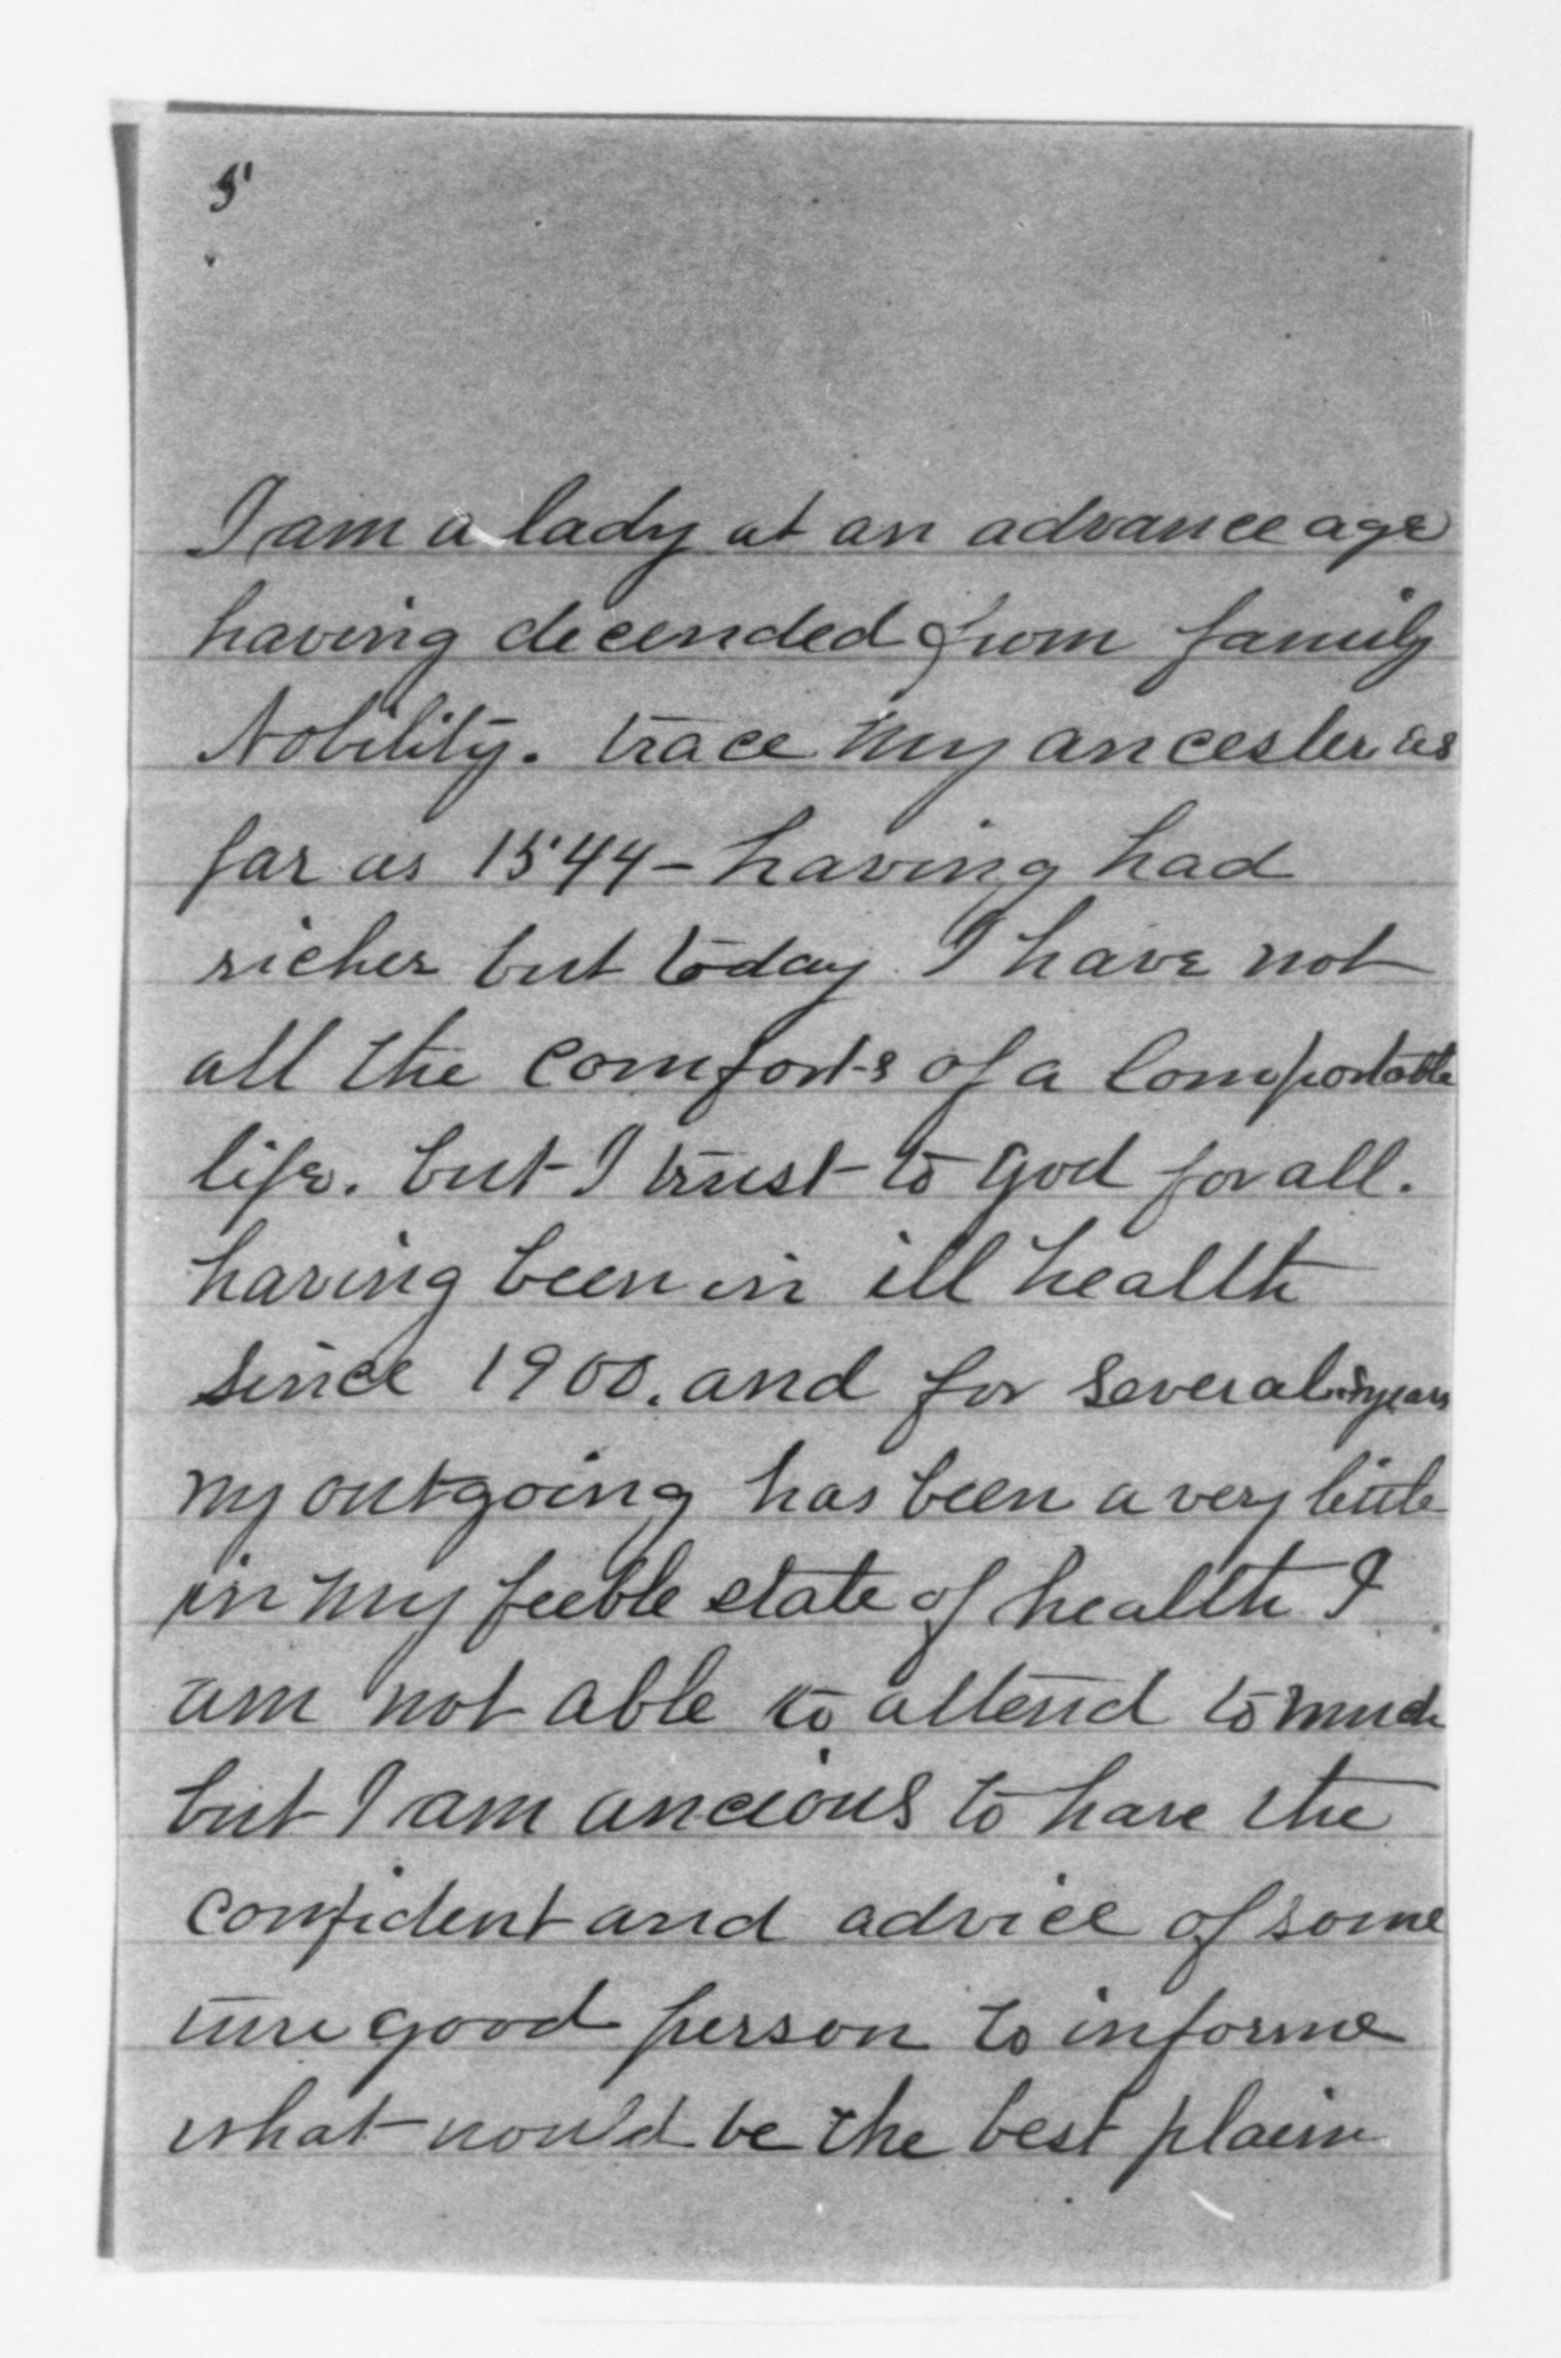 5
I am a lady at an advance age
having decended from family
Nobility. trace my ancester as
far as 1544 - having had
riches but today I have not
all the comforts of a Comfortable
life. but I trust to God for all.
having been in ill health
since 1900. and for several years
my outgoing has been a very little
in my feeble state of health I
am not able to attend to much
but I am ancious to have the
confident and advice of some
ture good person to informe
what would be the best plain